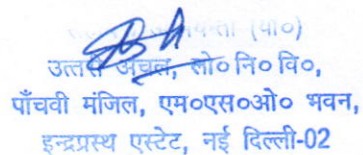 (यां०)
उत्तरी अंचल, लो०नि०वि०,
पाँचवी मंजिल, एम०एस०ओ० भवन,
इन्द्रप्रस्थ एस्टेट, नई दिल्ली-02